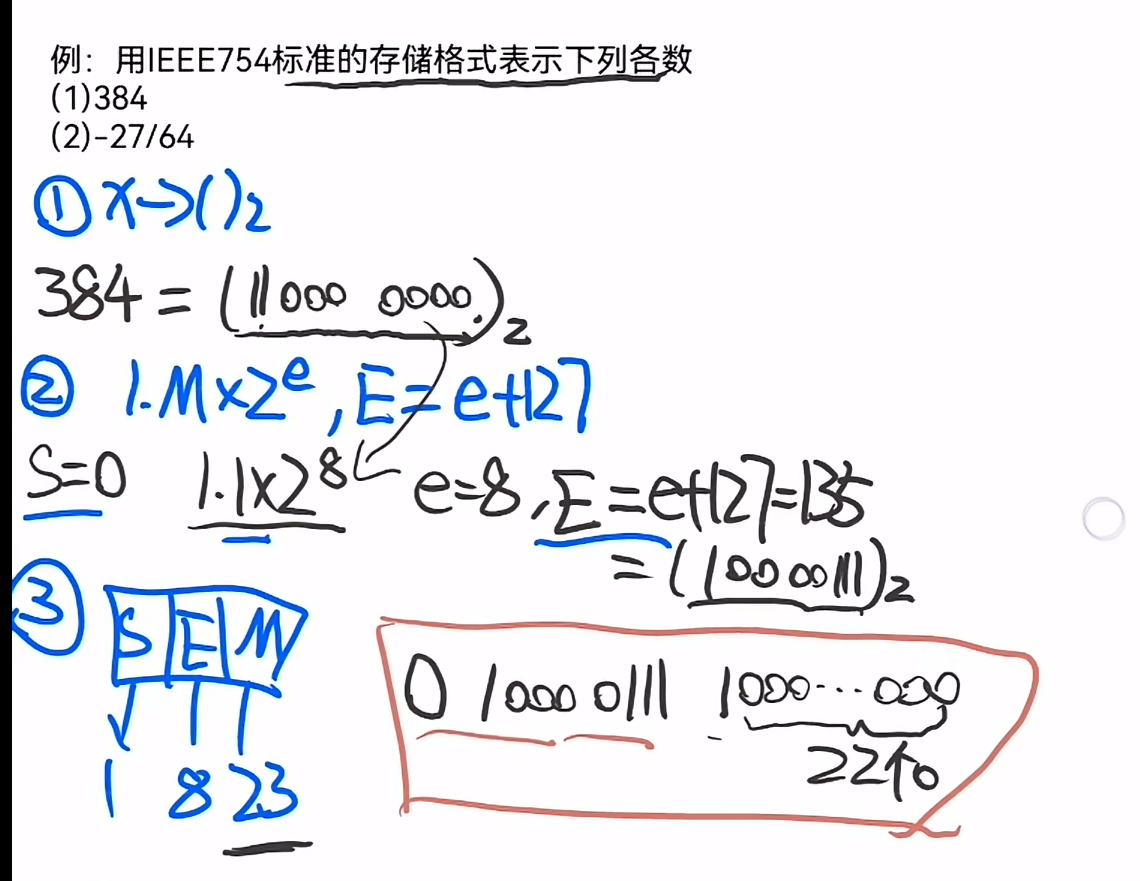 例：用IEEE754标准的存储格式表示下列各数
(1)384
(2)-27/64
① x→( )₂
384 = (11000 0000.)₂
② 1.M×2ᵉ, E=e+127
S=0 1.1×2⁸ e=8, E=e+127=135
=(10000111)₂
③ S E M
0 1000 0111 1000···000
22个0
1 8 23